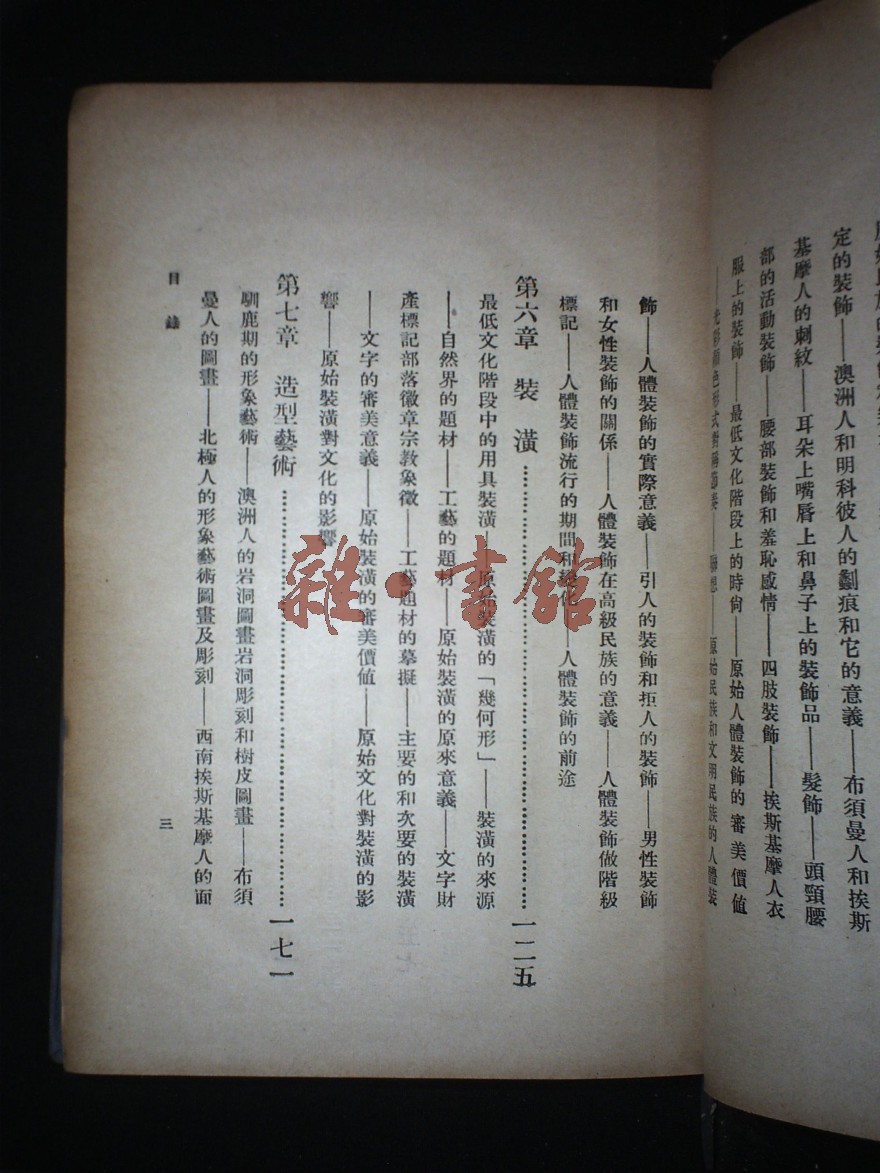 定的裝飾——澳洲人和明科彼人的劙痕和它的意義——布須曼人和挨斯
基摩人的刺紋——耳朵上嘴唇上和鼻子上的裝飾品——髮飾——頭頸腰
部的活動裝飾——腰部裝飾和羞恥感情——四肢裝飾——挨斯基摩人衣
服上的裝飾——最低文化階段上的時尙——原始人體裝飾的審美價値
顏色形式對稱節奏——聯想——原始民族和文明民族的人體裝
飾——人體裝飾的實際意義——引人的裝飾和拒人的裝飾——男性裝飾
和女性裝飾的關係——人體裝飾在高級民族的意義——人體裝飾做階級
標記——人體裝飾流行的期間和變化——人體裝飾的前途
第六章 裝潢……一二五
最低文化階段中的用具裝潢——原始裝潢的「幾何形」——裝潢的來源
——自然界的題材——工藝的題材——原始裝潢的原來意義——文字財
產標記部落徽章宗教象徵——工藝題材的摹擬——主要的和次要的裝潢
——文字的審美意義——原始裝潢的審美價値——原始文化對裝潢的影
響——原始裝潢對文化的影響
第七章 造型藝術……一七一
馴鹿期的形象藝術——澳洲人的岩洞圖畫岩洞彫刻和樹皮圖畫——布須
曼人的圖畫——北極人的形象藝術圖畫及彫刻——西南挨斯基摩人的面
目錄
三
雜·書館